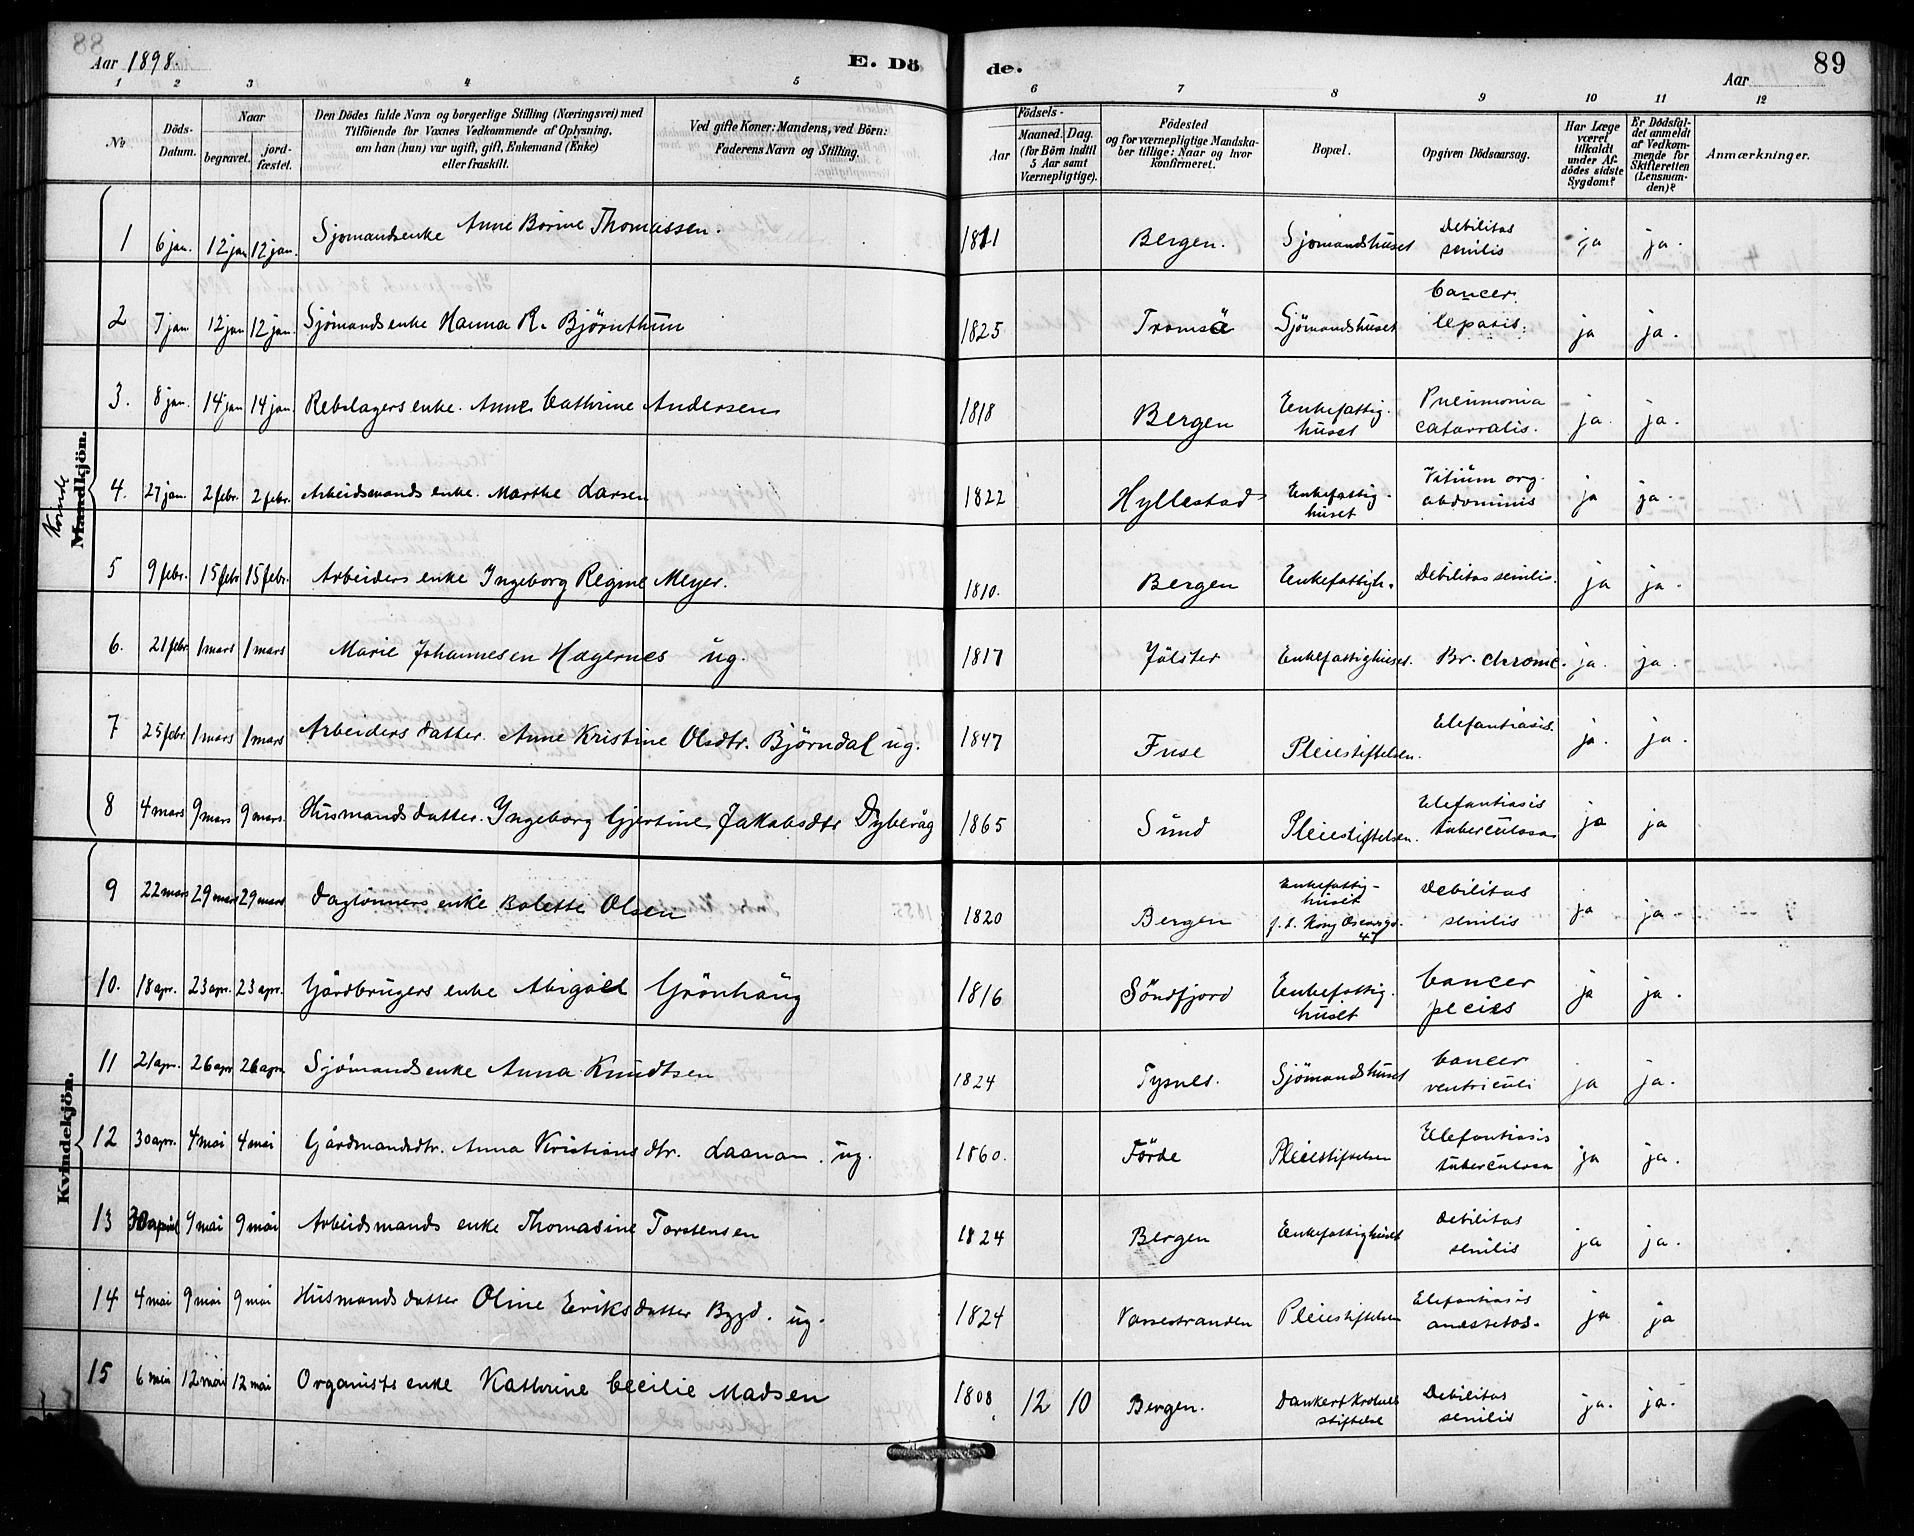 88
Aar 1898.
E. Dö
de.
Aar
89
1 2 3 4 5 6 7 8 9 10 11 12
No
Döds-Datum.
Naar
begravet.
jordfæstet.
Den Dödes fulde Navn og borgerlige Stilling (Næringsvei) med
Tilföiende for Voxnes Vedkommende af Oplysning,
om han (hun) var ugift, gift, Enkemand (Enke)
eller fraskilt.
Ved gifte Koner: Mandens, ved Börn:
Faderens Navn og Stilling.
Födsels-
Aar
Maaned. Dag.
(for Börn indtil
5 Aar samt
Værnepligtige).
Födested
og for værnepligtige Mandskaber tillige: Naar og hvor
konfirmeret.
Bopæl.
Opgiven Dödsaarsag.
Har Læge
været
tilkaldt
under Afdödes sidste
Sygdom?
Er Dödsfaldet anmeldt
af Vedkommende for
Skifteretten
(Lensmanden)?
Anmærkninger.
Kvinde
Mandkjön.
Kvindekjön.
1 6 jan. 12 jan 12 jan. Sjømandsenke Anne Borine Thomassen. 1811 Bergen. Sjømandshuset Debilitas senilis ja ja.
2 7 jan 12 jan 12 jan. Sjømandsenke Hanna R. Bjørnthun 1825 Tromsø Sjømandshuset Cancer lepatis. ja ja.
3. 8 jan. 14 jan 14 jan. Rebslagers enke. Anne Cathrine Andersen 1818 Bergen Enkefattighuset Pneumonia catarralis. ja. ja.
4. 27 jan. 2 febr. 2 febr. Arbeidsmands enke. Marthe Larsen 1822 Hyllestad Enkefattighuset Vitium org. abdominis ja ja.
5 9 febr. 15 febr 15 febr. Arbeiders enke Ingeborg Regine Meyer. 1810. Bergen Enkefattigh. Debilitas senilis. ja ja.
6. 21 febr 1 mars 1 mars Marie Johannesen Hægernes ug. 1817 Jölster Enkefattighuset. Br. chronic. ja. ja.
7 25 febr. 1 mars 1 mars Arbeiders datter. Anne Kristine Olsdtr. Bjørndal ug. 1847 Fuse Pleiestiftelsen. Elefantiasis. ja. ja.
8 4 mars 9 mars 9 mars. Husmands datter. Ingeborg Gjertine Jakobsdtr Dybevåg 1865 Sund Pleiestiftelsen. Elefantiasis tuberculosa ja ja
9 22 mars 29 mars 29 mars. Daglönners enke Bolette Olsen 1820 Bergen Enkefattighuset f. d. Kong Oscarsgd. 47 Debilitas senilis ja ja
10. 18 apr. 23 apr. 23 apr. Gårdbrugers enke Abigael Grönhaug 1816 Söndfjord Enkefattighuset Cancer ja ja.
11 21 apr. 26 apr 26 apr. Sjömandsenke Anna Knudtsen 1824 Tysnes. Sjömandshuset Cancer ventriculi ja ja.
12 30 apr. 4 mai 4 mai Gårdmandsdtr. Anna Kristians dtr. ug. 1860. Förde Pleiestiftelsen Elefantiasis tuberculosa ja ja.
13 30 april 9 mai 9 mai Arbeidsmands enke Thomasine Torstensen 1824 Bergen Enkefattighuset Debilitas senilis ja ja.
14 4 mai 9 mai 9 mai Husmands datter Oline Eriksdatter Bygd. ug. 1824 Vossestranden Pleiestiftelsen Elefantiasis ja ja
15 6 mai 12 mai 12 mai Organists enke Kathrine Cecilie Madsen 1808 12 10 Bergen. Dankert Krohns stiftelse Debilitas senilis ja. ja.